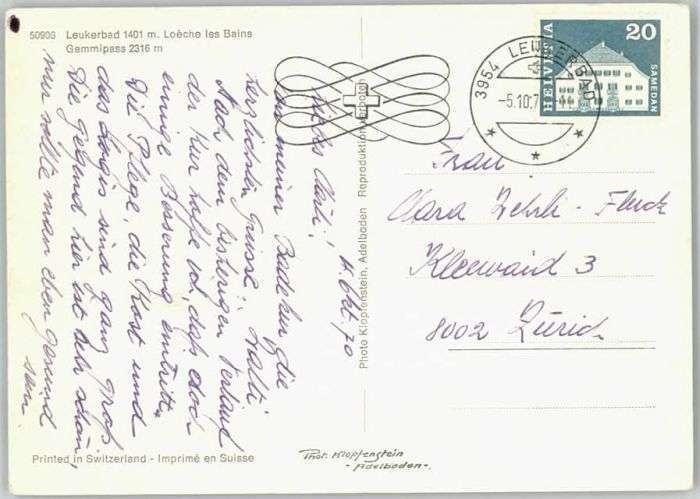 50903 Leukerbad 1401 m. Loèche les Bains
Gemmipass 2316 m
4. Okt. 70
Von meiner Badekur die
herzlichsten Grüsse!
Nach dem bisherigen Verlauf
der Kur hoffe ich, dass doch
einige Besserung eintritt.
Die Pflege, die Kost und
das Logis sind ganz gross
Die Gegend hier ist sehr schön,
nur sollte man eben gesund
sein.
Printed in Switzerland - Imprimé en Suisse
Photo Klopfenstein, Adelboden Reproduktion verboten
Phot. Klopfenstein
- Adelboden -
3954 LEUKERBAD
-5.10.7
HELVETIA
20
SAMEDAN
Frau
Clara Zehrli-
Kleeweid 3
8002 Zürich